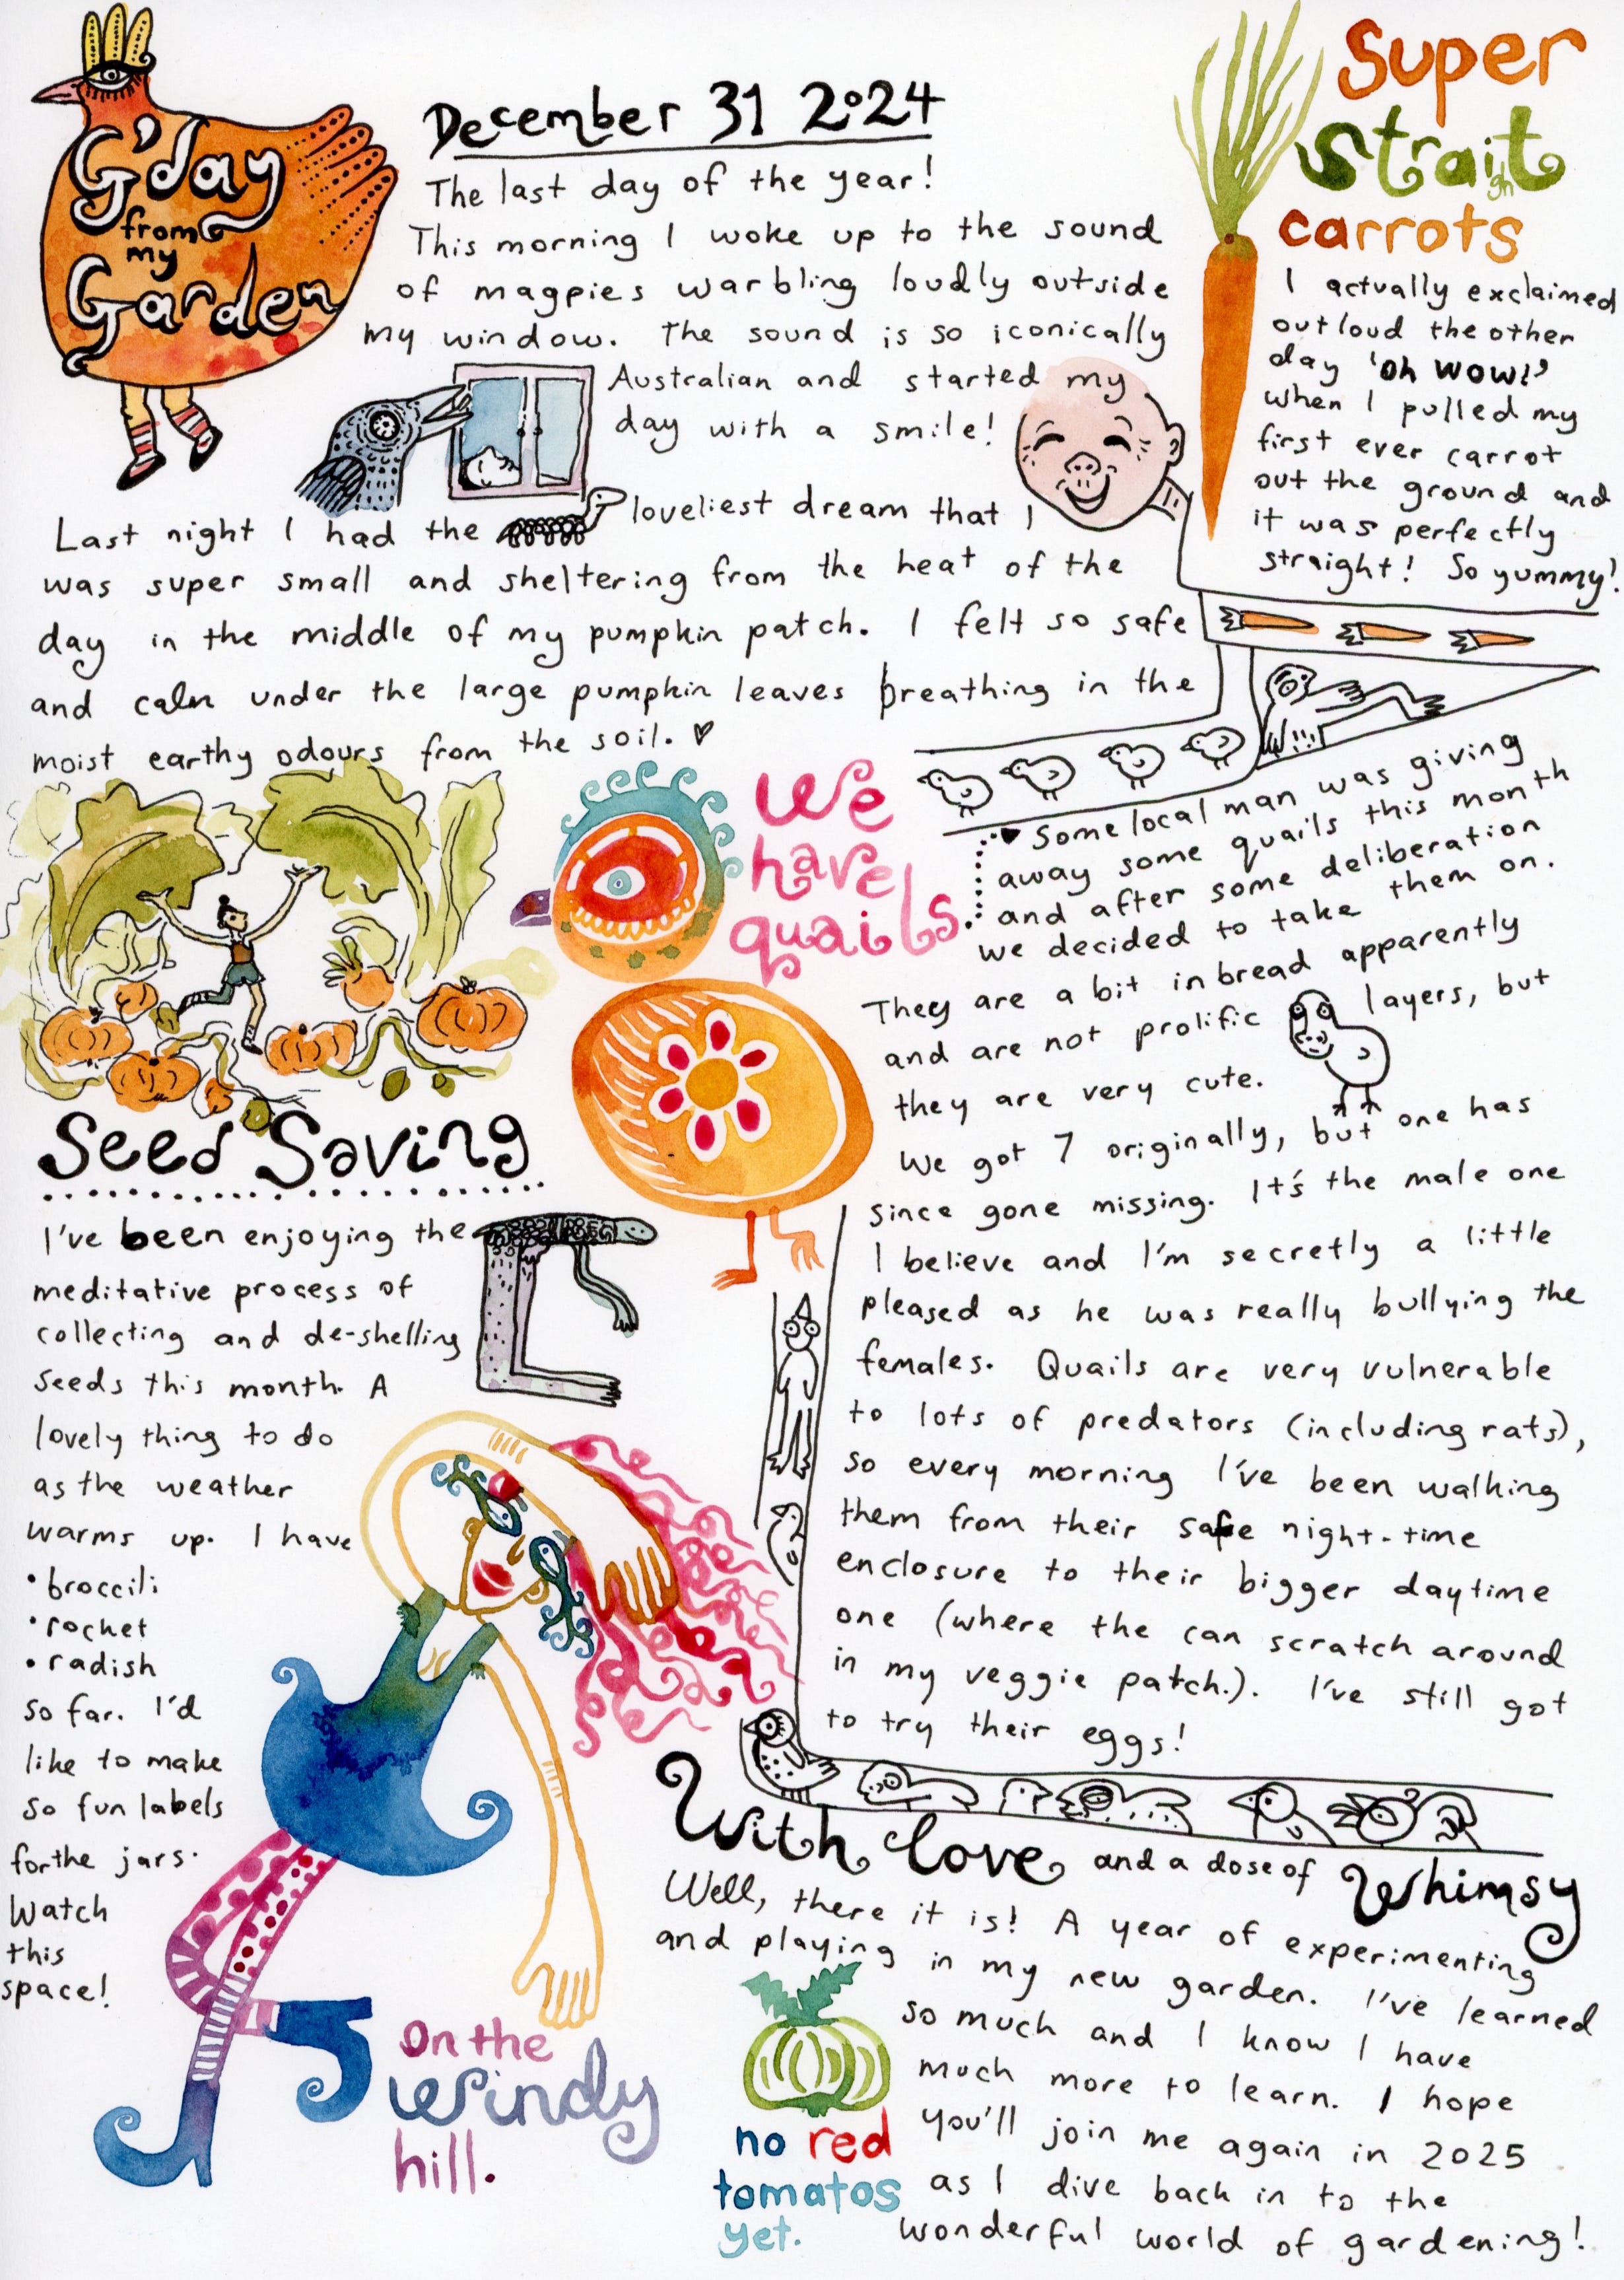 G'day
from
my
Garden
December 31 2024
The last day of the year!
This morning I woke up to the sound
of magpies warbling loudly outside
my window. The sound is so iconically
Australian and started my
day with a smile!
Last night I had the loveliest dream that I
was super small and sheltering from the heat of the
day in the middle of my pumpkin patch. I felt so safe
and calm under the large pumpkin leaves breathing in the
moist earthy odours from the soil. ♥
Super
straight
carrots
I actually exclaimed
out loud the other
day 'oh wow!'
when I pulled my
first ever carrot
out the ground and
it was perfectly
straight! So yummy!
We
have
quails.
Some local man was giving
away some quails this month
and after some deliberation
we decided to take them on.
They are a bit inbread apparently
and are not prolific layers, but
they are very cute.
We got 7 originally, but one has
since gone missing. It's the male one
I believe and I'm secretly a little
pleased as he was really bullying the
females. Quails are very vulnerable
to lots of predators (including rats),
so every morning I've been walking
them from their safe night-time
enclosure to their bigger daytime
one (where the can scratch around
in my veggie patch.). I've still got
to try their eggs!
Seed Saving
I've been enjoying the
meditative process of
collecting and de-shelling
seeds this month. A
lovely thing to do
as the weather
warms up. I have
• broccili
• rocket
• radish
so far. I'd
like to make
so fun labels
for the jars.
Watch
this
space!
On the
windy
hill.
With love and a dose of Whimsy
Well, there it is! A year of experimenting
and playing in my new garden. I've learned
so much and I know I have
much more to learn. I hope
you'll join me again in 2025
as I dive back in to the
wonderful world of gardening!
no red
tomatos
yet.